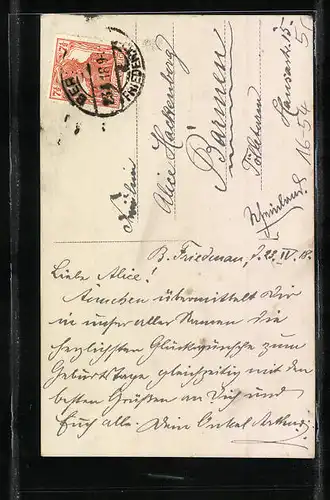 Fräulein
Alice Hackenberg
Barmen
Tölleturm
Hansastr. 15
Rheinland.
1654
B. Friedenau, d. 23. IV. 18.
Liebe Alice!
Ännchen übermittelt Dir
in unser aller Namen die
herzlichsten Glückwünsche zum
Geburtstage gleichzeitig mit den
besten Grüßen an Dich und
Euch alle. Dein Onkel Arthur.